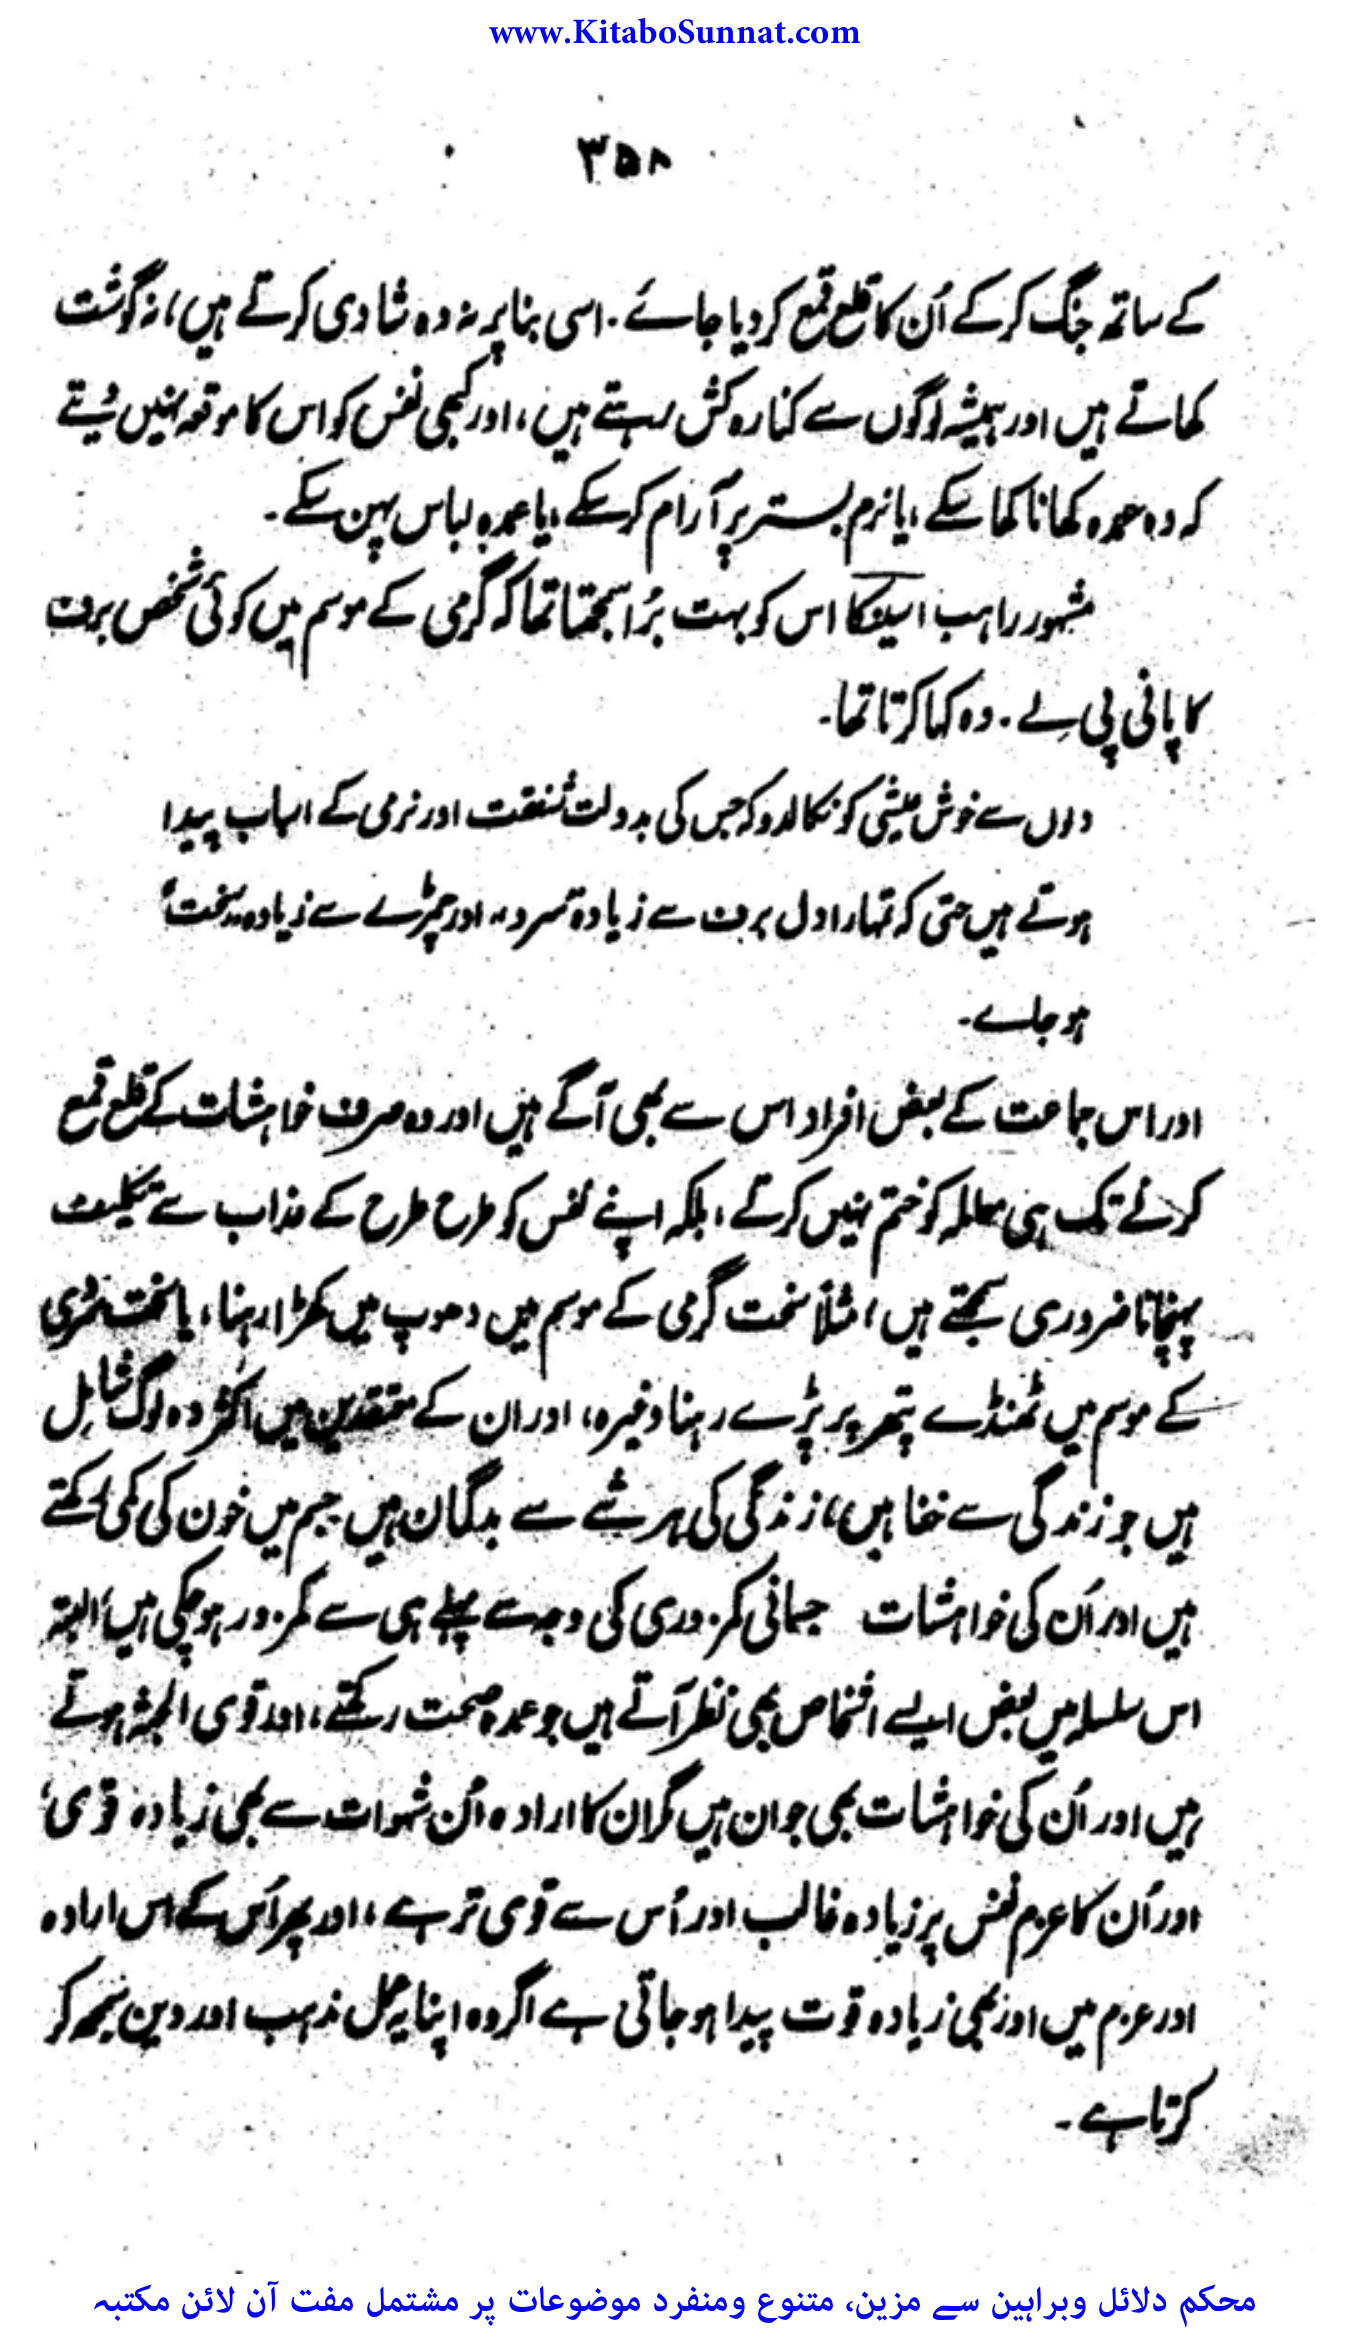 www.KitaboSunnat.com
۳۵۸
کے ساتھ جنگ کرکے اُن کا قلع قمع کر دیا جائے۔ اسی بنا پر نہ وہ شادی کرتے ہیں، نہ گوشت
کھاتے ہیں اور ہمیشہ لوگوں سے کنارہ کش رہتے ہیں، اور کبھی نفس کو اس کا موقعہ نہیں دیتے
کہ وہ عمدہ کھانا کھا سکے، یا نرم بستر پر آرام کر سکے، یا عمدہ لباس پہن سکے۔
مشہور راہب اسینکا اس کو بہت بُرا سمجھتا تھا کہ گرمی کے موسم میں کوئی شخص برف
کا پانی پی لے۔ وہ کہا کرتا تھا۔
دلوں سے خوش عیشی کو نکالدو کہ جس کی بدولت شفقت اور نرمی کے اسباب پیدا
ہوتے ہیں حتی کہ تمہارا دل برف سے زیادہ سرد، اور چمڑے سے زیادہ سخت
ہو جاے۔
اور اس جماعت کے بعض افراد اس سے بھی آگے ہیں اور وہ صرف خواہشات کے قلع قمع
کرنے تک ہی معاملہ کو ختم نہیں کرتے، بلکہ اپنے نفس کو طرح طرح کے عذاب سے تکلیف
پہنچانا ضروری سمجھتے ہیں، مثلاً سخت گرمی کے موسم میں دھوپ میں کھڑا رہنا، یا سخت سردی
کے موسم میں ٹھنڈے پتھر پر پڑے رہنا وغیرہ، اور ان کے معتقدین میں اکثر وہ لوگ شامل
ہیں جو زندگی سے خفا ہیں، زندگی کی ہر شے سے بدگمان ہیں جسم میں خون کی کمی رکھتے
ہیں اور اُن کی خواہشات جسمانی کمزوری کی وجہ سے پہلے ہی سے کمزور ہو چکی ہیں، البتہ
اس سلسلہ میں بعض ایسے اشخاص بھی نظر آتے ہیں جو عمدہ صحت رکھتے، اور قوی الجثہ ہوتے
ہیں اور اُن کی خواہشات بھی جوان ہیں مگر ان کا ارادہ اُن شہوات سے بھی زیادہ قوی،
اور اُن کا عزم نفس پر زیادہ غالب اور اُس سے قوی تر ہے، اور پھر اُس کے اس ارادہ
اور عزم میں اور بھی زیادہ قوت پیدا ہو جاتی ہے اگر وہ اپنا یہ عمل مذہب اور دین سمجھ کر
کرتا ہے۔
محکم دلائل وبراہین سے مزین، متنوع ومنفرد موضوعات پر مشتمل مفت آن لائن مکتبہ